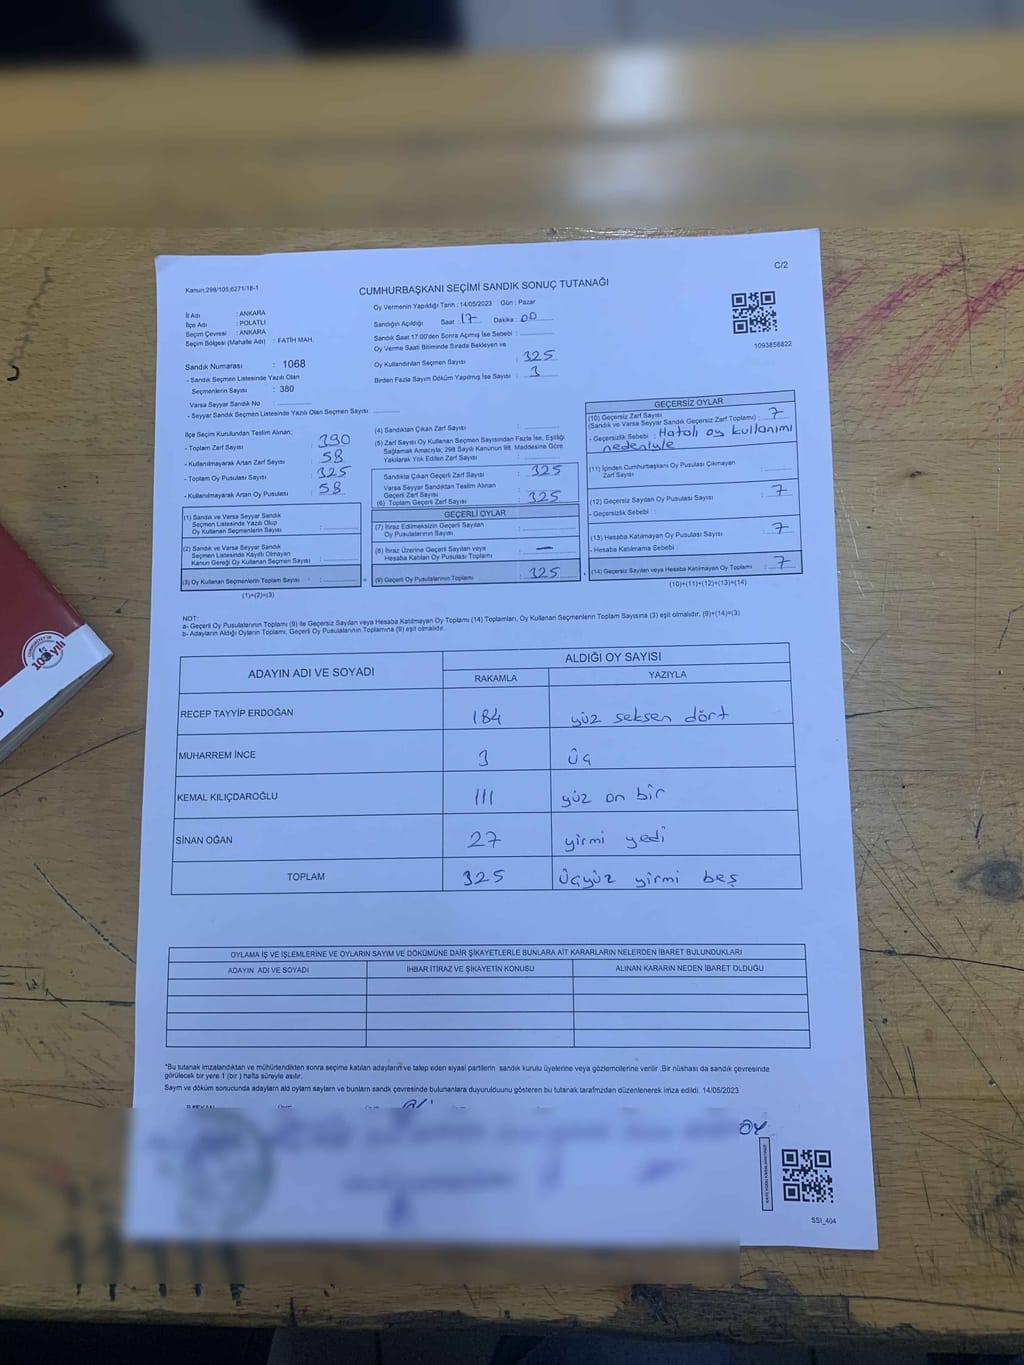 C/2
Kanun;298/105;6271/18-1
CUMHURBAŞKANI SEÇİMİ SANDIK SONUÇ TUTANAĞI
İl Adı : ANKARA
İlçe Adı : POLATLI
Seçim Çevresi : ANKARA
Seçim Bölgesi (Mahalle Adı) : FATİH MAH.
Sandık Numarası : 1068
- Sandık Seçmen Listesinde Yazılı Olan
Seçmenlerin Sayısı : 380
Varsa Seyyar Sandık No :
- Seyyar Seçmen Listesinde Yazılı Olan Seçmen Sayısı :
Oy Vermenin Yapıldığı Tarih : 14/05/2023 Gün : Pazar
Sandığın Açıldığı Saat : 17 Dakika : 00
Sandık Saat 17:00'den Sonra Açılmış İse Sebebi :
Oy Verme Saati Bitiminde Sırada Bekleyen ve
Oy Kullandırılan Seçmen Sayısı : 325
Birden Fazla Sayım Döküm Yapılmış İse Sayısı : 3
1093858822
İlçe Seçim Kurulundan Teslim Alınan;
- Toplam Zarf Sayısı : 390
- Kullanılmayarak Artan Zarf Sayısı : 58
- Toplam Oy Pusulası Sayısı : 325
- Kullanılmayarak Artan Oy Pusulası : 58
(1) Sandık ve Varsa Seyyar Sandık
Seçmen Listesinde Yazılı Olup
Oy Kullanan Seçmenlerin Sayısı :
(2) Sandık ve Varsa Seyyar Sandık
Seçmen Listesinde Kayıtlı Olmayan
Kanun Gereği Oy Kullanan Seçmen Sayısı :
(3) Oy Kullanan Seçmenlerin Toplam Sayısı :
(1)+(2)=(3)
(4) Sandıktan Çıkan Zarf Sayısı :
(5) Zarf Sayısı Oy Kullanan Seçmen Sayısından Fazla İse, Eşitliği
Sağlamak Amacıyla; 298 Sayılı Kanunun ilt. Maddesine Göre
Yakılarak Yok Edilen Zarf Sayısı :
Sandıkta Çıkan Geçerli Zarf Sayısı : 325
Varsa Seyyar Sandıktan Teslim Alınan
Geçerli Zarf Sayısı :
(6) Toplam Geçerli Zarf Sayısı : 325
GEÇERLİ OYLAR
(7) İtiraz Edilmeksizin Geçerli Sayılan
Oy Pusulalarının Sayısı :
(8) İtiraz Üzerine Geçerli Sayılan veya
Hesaba Katılan Oy Pusulası Toplamı : —
(9) Geçerli Oy Pusulalarının Toplamı : 325
GEÇERSİZ OYLAR
(10) Geçersiz Zarf Sayısı
(Sandık ve Varsa Seyyar Sandık Geçersiz Zarf Toplamı) : 7
- Geçersizlik Sebebi : Hatalı oy kullanımı
nedeniyle
(11) İçinden Cumhurbaşkanı Oy Pusulası Çıkmayan
Zarf Sayısı :
(12) Geçersiz Sayılan Oy Pusulası Sayısı : 7
- Geçersizlik Sebebi :
(13) Hesaba Katılmayan Oy Pusulası Sayısı : 7
- Hesaba Katılmama Sebebi :
(14) Geçersiz Sayılan veya Hesaba Katılmayan Oy Toplamı : 7
(10)+(11)+(12)+(13)=(14)
NOT:
a- Geçerli Oy Pusulalarının Toplamı (9) ile Geçersiz Sayılan veya Hesaba Katılmayan Oy Toplamı (14) Toplamları, Oy Kullanan Seçmenlerin Toplam Sayısına (3) eşit olmalıdır. (9)+(14)=(3)
b- Adayların Aldığı Oyların Toplamı, Geçerli Oy Pusulalarının Toplamına (9) eşit olmalıdır.
ADAYIN ADI VE SOYADI ALDIĞI OY SAYISI
RAKAMLA YAZIYLA
RECEP TAYYİP ERDOĞAN 184 yüz seksen dört
MUHARREM İNCE 3 üç
KEMAL KILIÇDAROĞLU 111 yüz on bir
SİNAN OĞAN 27 yirmi yedi
TOPLAM 325 üçyüz yirmi beş
OYLAMA İŞ VE İŞLEMLERİNE VE OYLARIN SAYIM VE DÖKÜMÜNE DAİR ŞİKAYETLERLE BUNLARA AİT KARARLARIN NELERDEN İBARET BULUNDUKLARI
ADAYIN ADI VE SOYADI İHBAR İTİRAZ VE ŞİKAYETİN KONUSU ALINAN KARARIN NEDEN İBARET OLDUĞU
*Bu tutanak imzalandıktan ve mühürlendikten sonra seçime katılan adayların ve talep eden siyasi partilerin sandık kurulu üyelerine veya gözlemcilerine verilir .Bir nüshası da sandık çevresinde
görülecek bir yere 1 (bir ) hafta süreyle asılır.
Sayım ve döküm sonucunda adayların ald oyların sayları ve bunların sandk çevresinde bulunanlara duyurulduunu gösteren bu tutanak tarafmzdan düzenlenerek imza edildi. 14/05/2023
SSI_404
100.yılı